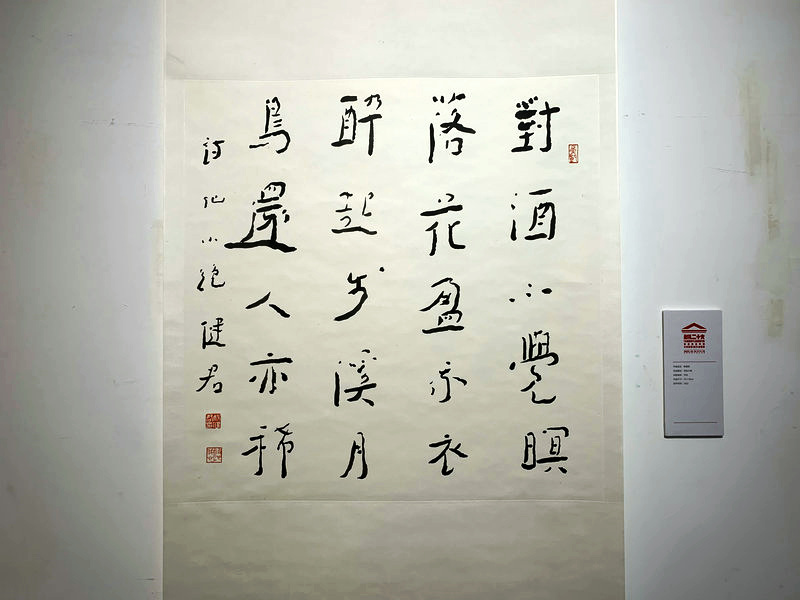 對酒不覺暝
落花盈我衣
酔起步溪月
鳥還人亦稀
詩仙小絕 健君